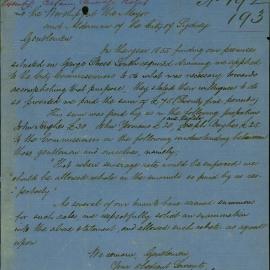 To the Worshipful The Mayor
and Aldermen of the City of Sydney
Gentlemen
In the year 1855 finding our premises
situated in George Street South required draining we applied
to the City Commissioners to do what was necessary towards
accomplishing that purpose. They offered to do
so provided we paid the sum of £75 (Seventy five pounds)
This sum was paid by us in the following proportion
John Hughes £30 John £20 Joseph Hughes £25
to the Commissioners on the following understanding between
those gentlemen and ourselves, namely;
"That when sewerage rate should be imposed we
should be allowed rebate in the amounts so paid by us res-
pectively."
As several of our tenants have received summons
for such rates we respectfully solicit an examination
into the above statement, and allowed such rebate, as agreed
upon
We remain, Gentlemen,
Your obedient Servants